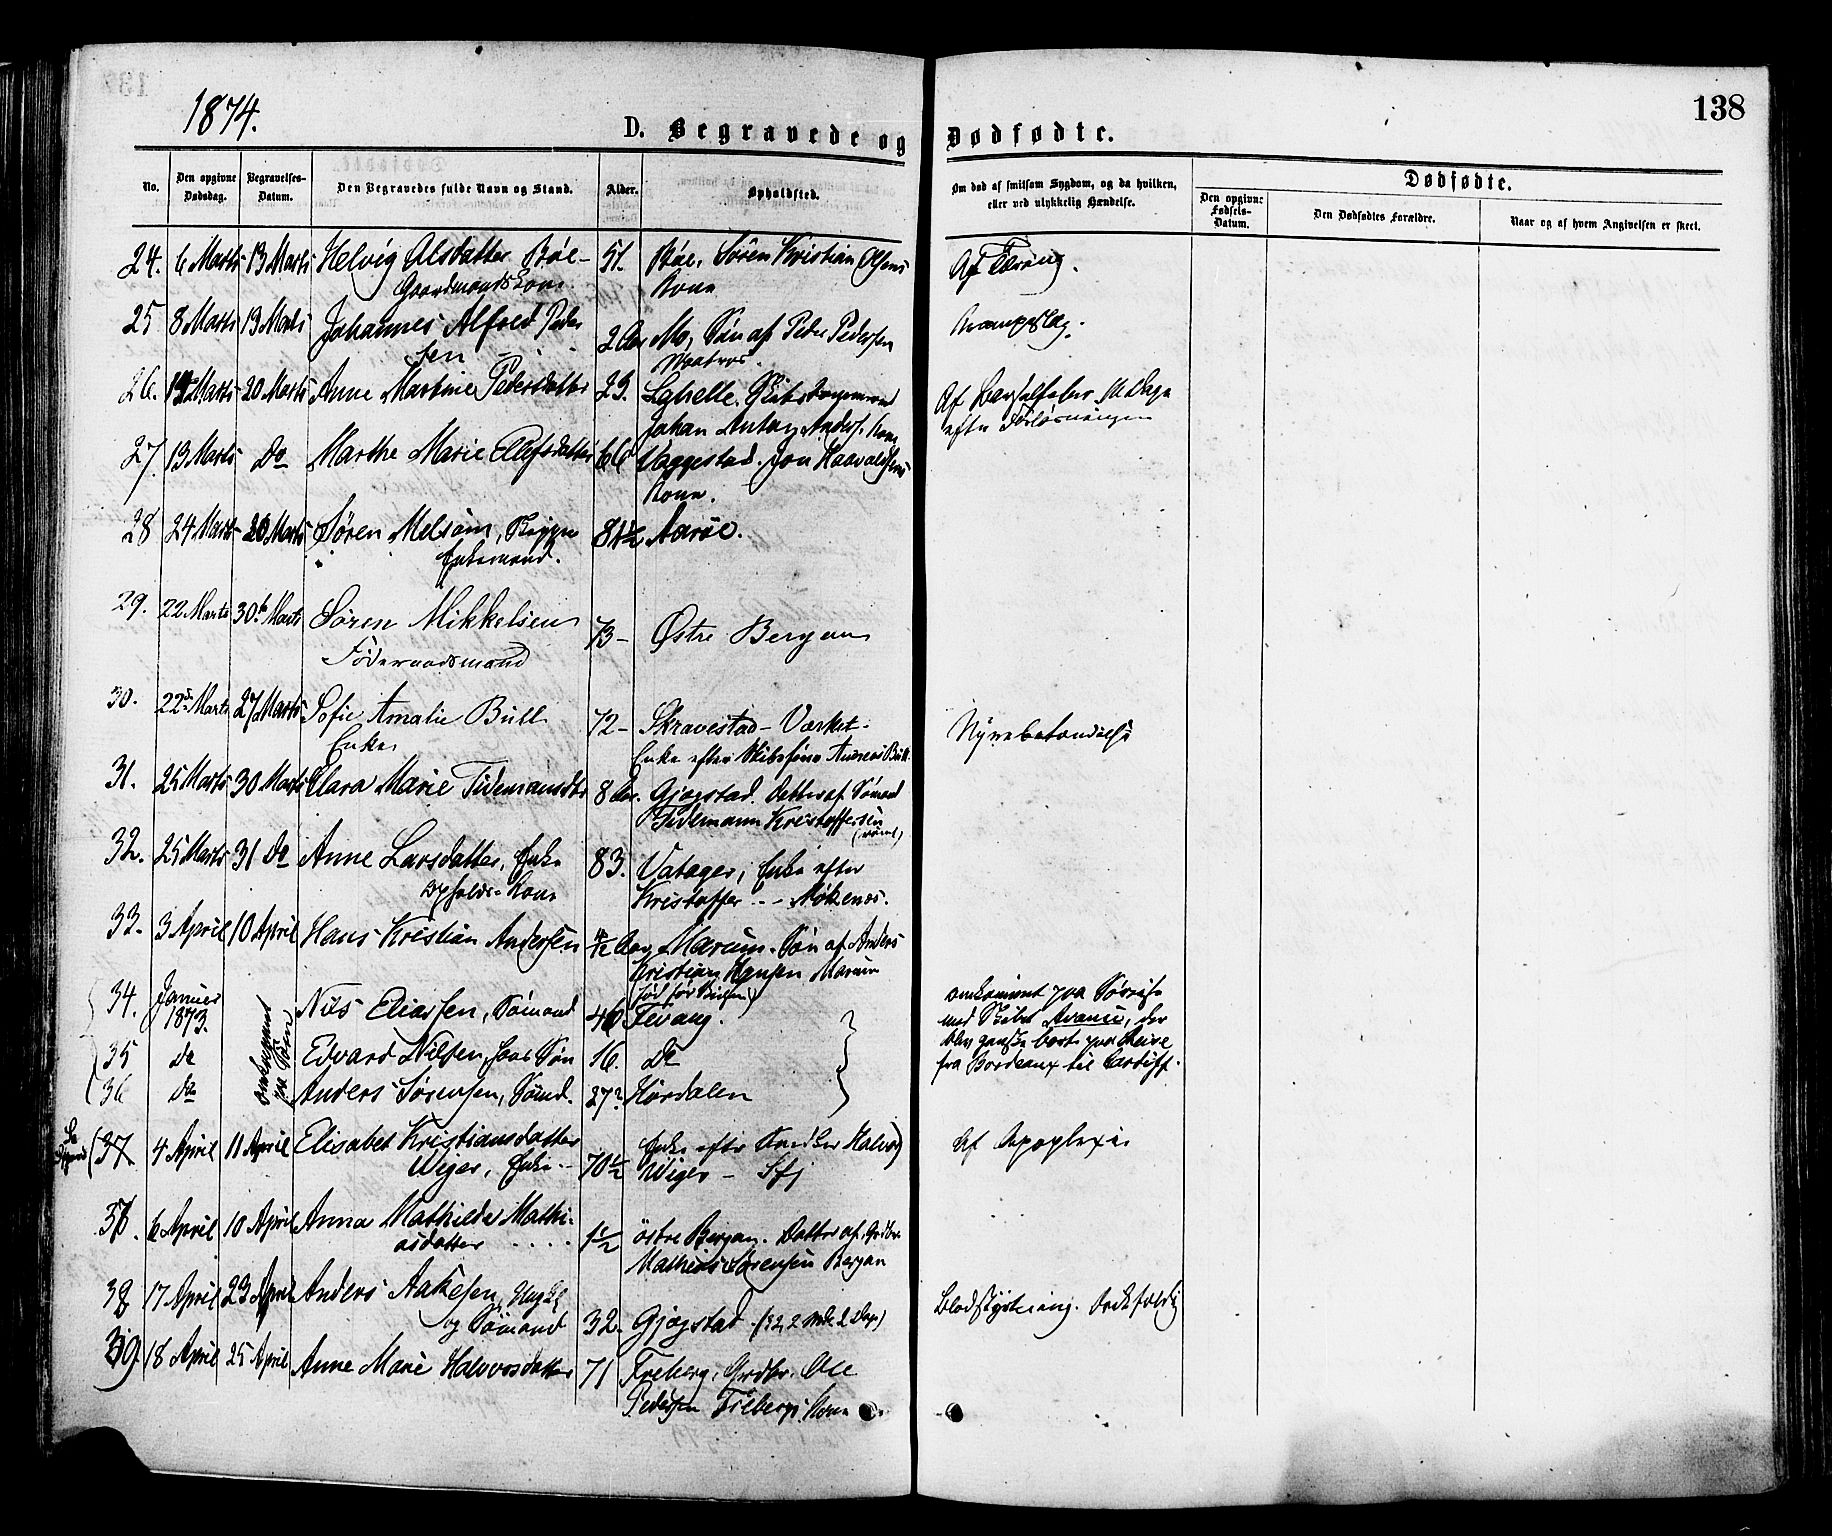 138
1874.
D. Begravede og Dødfødte.
No.
Den opgivne Dødsdag.
Begravelses-Datum.
Den Begravedes fulde Navn og Stand.
Alder.
Opholdsted.
Om død af smitsom Sygdom, og da hvilken, eller ved ulykkelig Hændelse.
Dødfødte.
Den opgivne Fødsels-Datum.
Den Dødfødtes Forældre.
Naar og af hvem Angivelsen er skeet.
24. 6 Marts 13 Marts Helvig Olsdatter Bøe- 51. Bøe, Søren Kristian Olsens Af Tæring.
Gaardmands Kone Kone
25 8 Marts 13 Marts Johannes Alfred Peder 2 Aar Mo, Søn af Peder Pedersen Krampeslag.
sen Matros.
26. 14 Marts 20 Marts Anne Martine Pedersdatter 23. Lahelle. Af Barselfeber 11 Dage
Johan Anton Anders. Kone efter Forløsningen
27. 13 Marts Do Marthe Marie Ellefsdatter 66 Vaggestad. Jon Haavaldsens
Kone.
28 24 Marts 26 Marts Søren Melsom, 81½ Aarøe.
Enkemand.
29. 22 Marts 30te Marts Søren Mikkelsen 73- Østre Bergan
Føderaadsmand
30. 22de Marts 27 Marts Sofie Amalie Bull 72- Skravestad-Værket- Nyrebetændelse
Enke Enke efter Skibsfører Andreas Bull
31. 25 Marts 30 Marts Clara Marie Tidemandsdtr 8 Aar. Gjøgstad. Datter af Sømand
Tidemann Kristoffersen
32. 25 Marts 31 Do Anne Larsdatter, Enke 83. Vatager; Enke efter
Opholds-Kone Kristoffer -- Nøkenes.
33. 3 April 10 April Hans Kristian Andersen Aar Marum. Søn af Anders
Kristian Hansen Marum
34. Januar 1873. omkommet paa Søen Nils Eliassen, Sømand 46 Fevang. omkommet paa Søreise
med Skibet Avance, der
35 Do Edvard Nilsen, hans Søn 16. Do blev ganske borte paa Reise
fra Bordeaux til Cardiff.
36 Do Anders Sørensen, Sømd. 27? Hørdalen
37 4 April 11 April Elisabet Kristiansdatter 70½ Enke efter Snedker Halvor Af Apoplexie
Weger, Enke- Weger - Sfj
37. 6 April 10 April Anna Mathilde Mathi- 1½ østre Bergan. Datter af Grdbr.
asdatter Mathias Sørensen Bergan
38 17 April 23 April Anders Aakesen, Ungkl 32. Gjøgstad. (32, 2 Mdr 2 Dage) Blodstyrtning.
og Sømand
39 18 April 25 April Anne Marie Halvorsdatter 71 Freberg, Grdbr. Ole
Pedersen Frebergs Kone